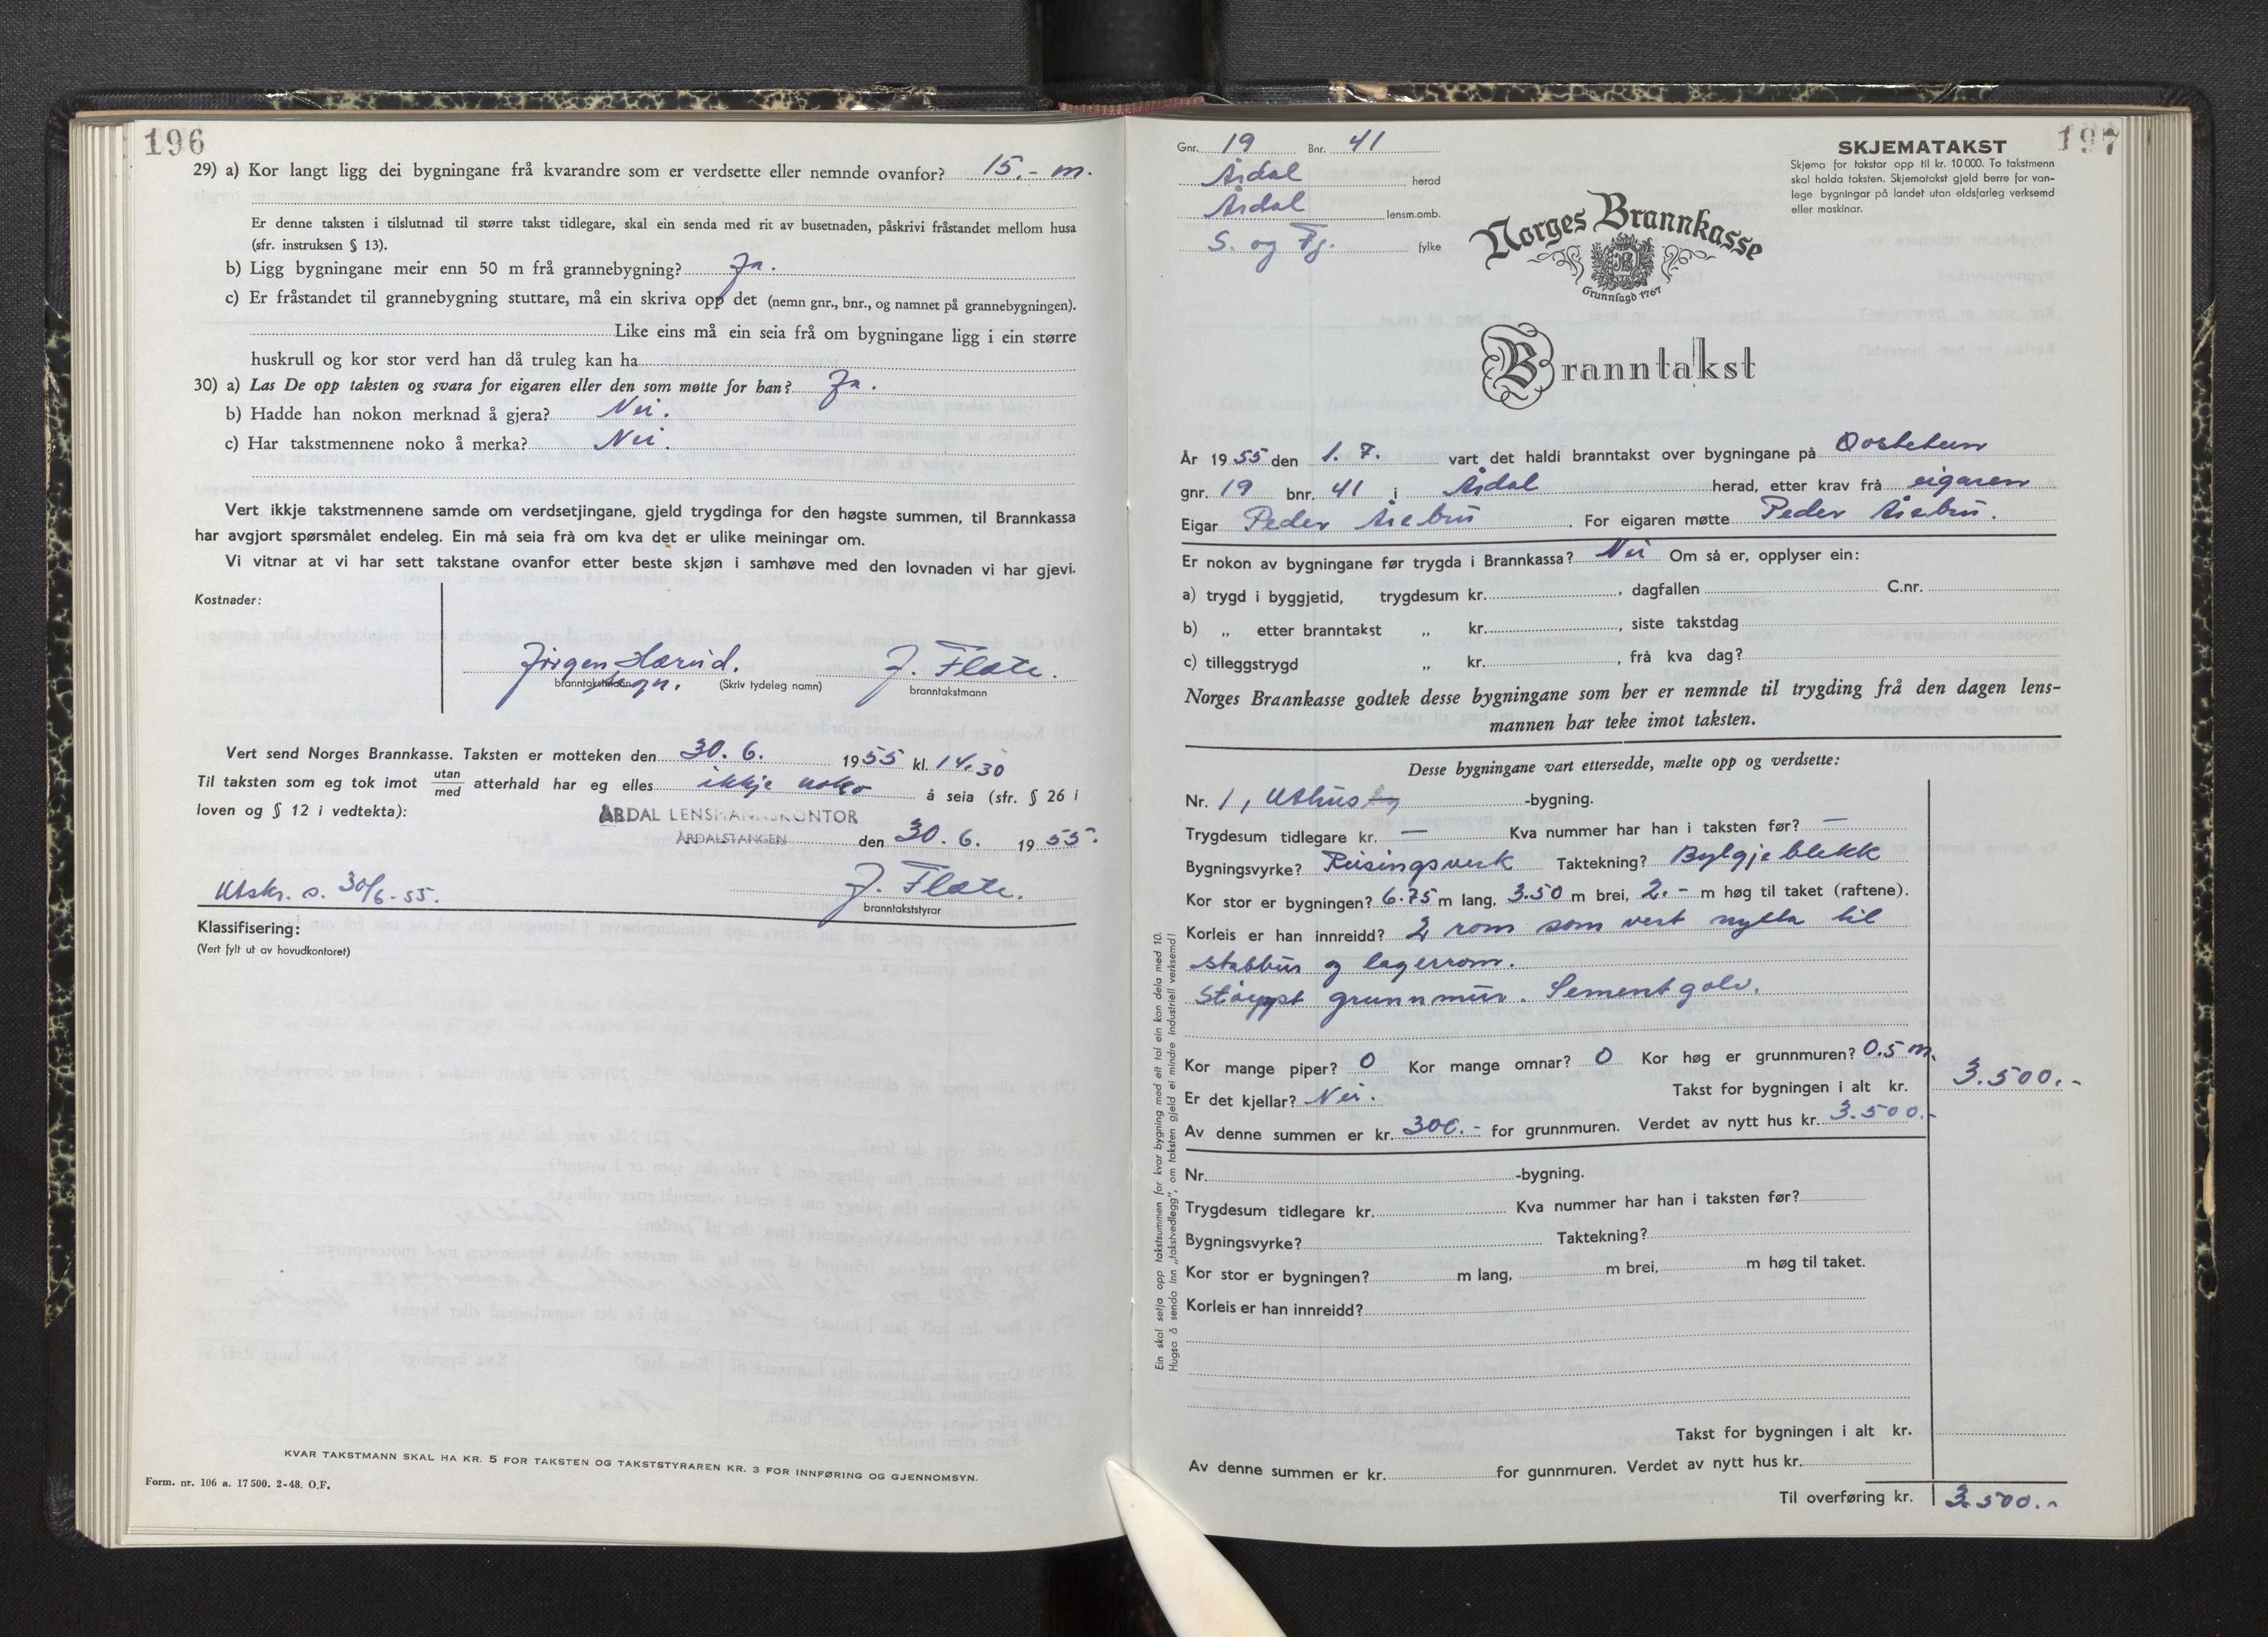 196
29) a) Kor langt ligg dei bygningane frå kvarandre som er verdsette eller nemnde ovanfor? 15.- m.
Er denne taksten i tilslutnad til større takst tidlegare, skal ein senda med rit av busetnaden, påskrivi fråstandet mellom husa
(sfr. instruksen § 13).
b) Ligg bygningane meir enn 50 m frå grannebygning? Ja.
c) Er fråstandet til grannebygning stuttare, må ein skriva opp det (nemn gnr., bnr., og namnet på grannebygningen).
Like eins må ein seia frå om bygningane ligg i ein større
huskrull og kor stor verd han då truleg kan ha
30) a) Las De opp taksten og svara for eigaren eller den som møtte for han? Ja.
b) Hadde han nokon merknad å gjera? Nei.
c) Har takstmennene noko å merka? Nei.
Vert ikkje takstmennene samde om verdsetjingane, gjeld trygdinga for den høgste summen, til Brannkassa
har avgjort spørsmålet endeleg. Ein må seia frå om kva det er ulike meiningar om.
Vi vitnar at vi har sett takstane ovanfor etter beste skjøn i samhøve med den lovnaden vi har gjevi.
Kostnader:
Jørgen Hæreid. J. Flate.
branntakstmann sogn. (Skriv tydeleg namn) branntakstmann
Vert send Norges Brannkasse. Taksten er motteken den 30. 6. 1955 kl. 14.30
Til taksten som eg tok imot utan/med atterhald har eg elles ikkje noko å seia (sfr. § 26 i
loven og § 12 i vedtekta):
ÅRDAL LENSMANNSKONTOR
ÅRDALSTANGEN den 30. 6. 1955.
Utskr. s. 30/6-55. J. Flate.
branntakststyrar
Klassifisering:
(Vert fylt ut av hovudkontoret)
KVAR TAKSTMANN SKAL HA KR. 5 FOR TAKSTEN OG TAKSTSTYRAREN KR. 3 FOR INNFØRING OG GJENNOMSYN.
Form. nr. 106 a. 17500. 2-48. O.F.
197
Gnr. 19 Bnr. 41
Årdal herad
Årdal lensm.omb.
S. og Fj. fylke
SKJEMATAKST
Skjema for takstar opp til kr. 10 000. To takstmenn
skal halda taksten. Skjematakst gjeld berre for van-
lege bygningar på landet utan eldsfarleg verksemd
eller maskinar.
Norges Brannkasse
Grunnlagd 1767
Branntakst
År 1955 den 1. 7. vart det haldi branntakst over bygningane på
gnr. 19 bnr. 41 i Årdal herad, etter krav frå eigaren
Eigar Peder Årebru. For eigaren møtte Peder Årebru.
Er nokon av bygningane før trygda i Brannkassa? Nei Om så er, opplyser ein:
a) trygd i byggjetid, trygdesum kr. , dagfallen C.nr.
b) „ etter branntakst „ kr. , siste takstdag
c) tilleggstrygd „ kr. , frå kva dag?
Norges Brannkasse godtek desse bygningane som her er nemnde til trygding frå den dagen lens-
mannen har teke imot taksten.
Desse bygningane vart ettersedde, mælte opp og verdsette:
Nr. 1, Uthus -bygning.
Trygdesum tidlegare kr. — Kva nummer har han i taksten før? —
Bygningsvyrke? Reisingsverk Taktekning? Bylgjeblekk
Kor stor er bygningen? 6.75 m lang, 3.50 m brei, 2.- m høg til taket (raftene).
Korleis er han innreidd? 2 rom som vert nytta til
stabbur og lagerrom.
Støypt grunnmur. Sementgolv.
Kor mange piper? 0 Kor mange omnar? 0 Kor høg er grunnmuren? 0.5 m.
Er det kjellar? Nei. Takst for bygningen i alt kr. 3.500.-
Av denne summen er kr. 300.- for grunnmuren. Verdet av nytt hus kr. 3.500.-
Nr. -bygning.
Trygdesum tidlegare kr. Kva nummer har han i taksten før?
Bygningsvyrke? Taktekning?
Kor stor er bygningen? m lang, m brei, m høg til taket.
Korleis er han innreidd?
Takst for bygningen i alt kr.
Av denne summen er kr. for gunnmuren. Verdet av nytt hus kr.
Til overføring kr. 3.500.-
Ein skal setja opp takstsummen for kvar bygning med eit tal ein kan dela med 10.
Hugsa å senda inn „takstvedlegg", om taksten gjeld ei mindre industriell verksemd!